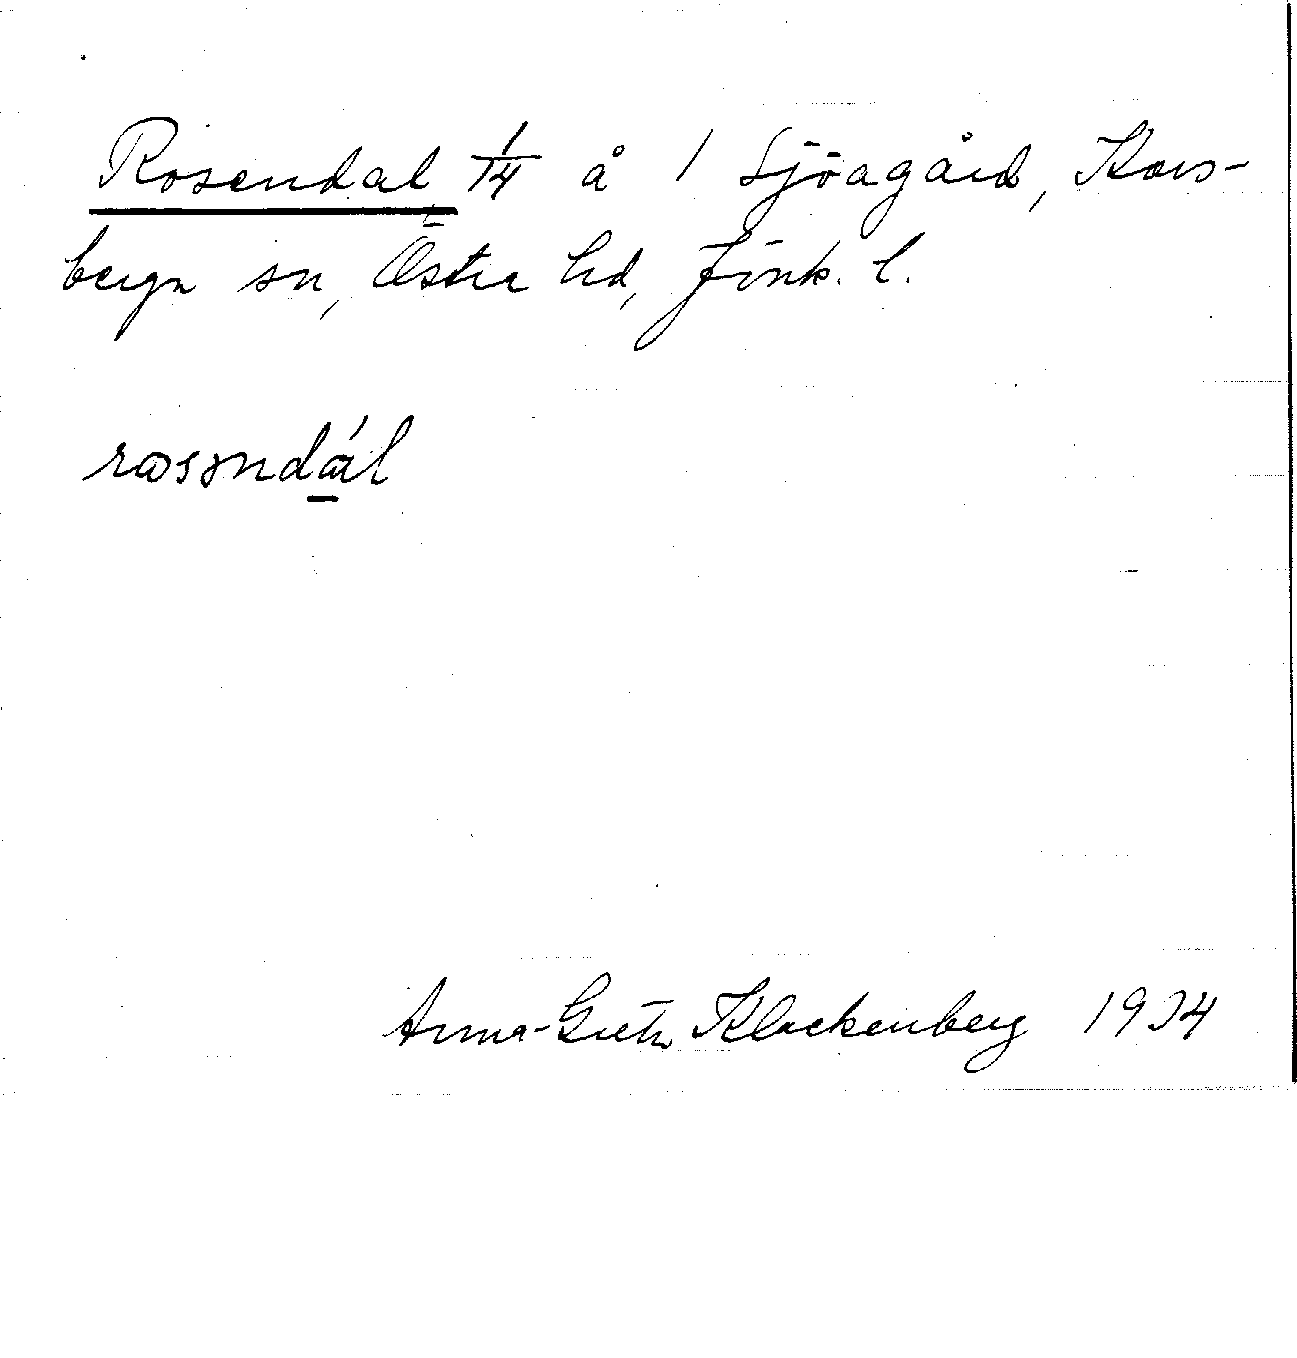 Rosendal, 1/14 å 1 Sjöagård, Kors-
berga sn, Östra hd, Jönk. l.
rosəndál
Anna-Greta Klockenberg 1934